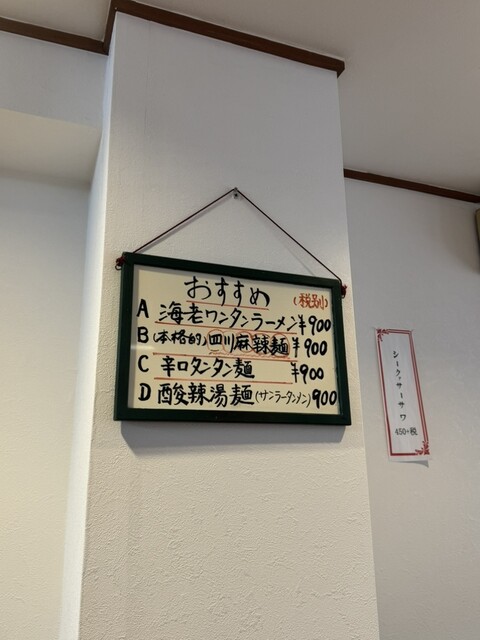 おすすめ (税別)
A 海老ワンタンラーメン ¥900
B (本格的) 四川麻辣麺 ¥900
C 辛口タンタン麺 ¥900
D 酸辣湯麺 (サンラータンメン) 900
シークッサーサワー
450+税